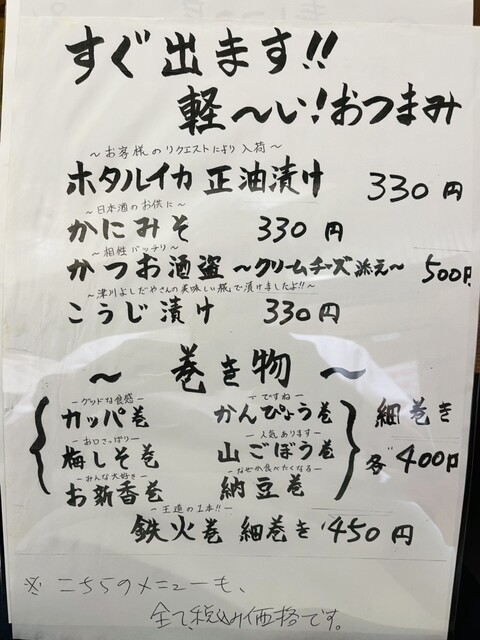 すぐ出ます!!
軽〜い!おつまみ
〜お客様のリクエストにより入荷〜
ホタルイカ正油漬け 330円
〜日本酒のお供に〜
かにみそ 330円
〜相性バッチリ〜
かつお酒盗〜クリームチーズ添え〜 500円
〜津川よしだやさんの美味しい糀で漬けましたよ!!〜
こうじ漬け 330円
〜 巻き物 〜
〜グッドな食感〜 〜ですね〜
カッパ巻 かんぴょう巻 細巻き
〜お口さっぱり〜 〜人気あります〜
梅しそ巻 山ごぼう巻 各400円
〜みんな大好き〜 〜なぜか食べたくなる〜
お新香巻 納豆巻
〜王道の1本!!〜
鉄火巻 細巻き 450円
※こちらのメニューも、
全て、税込み価格です。